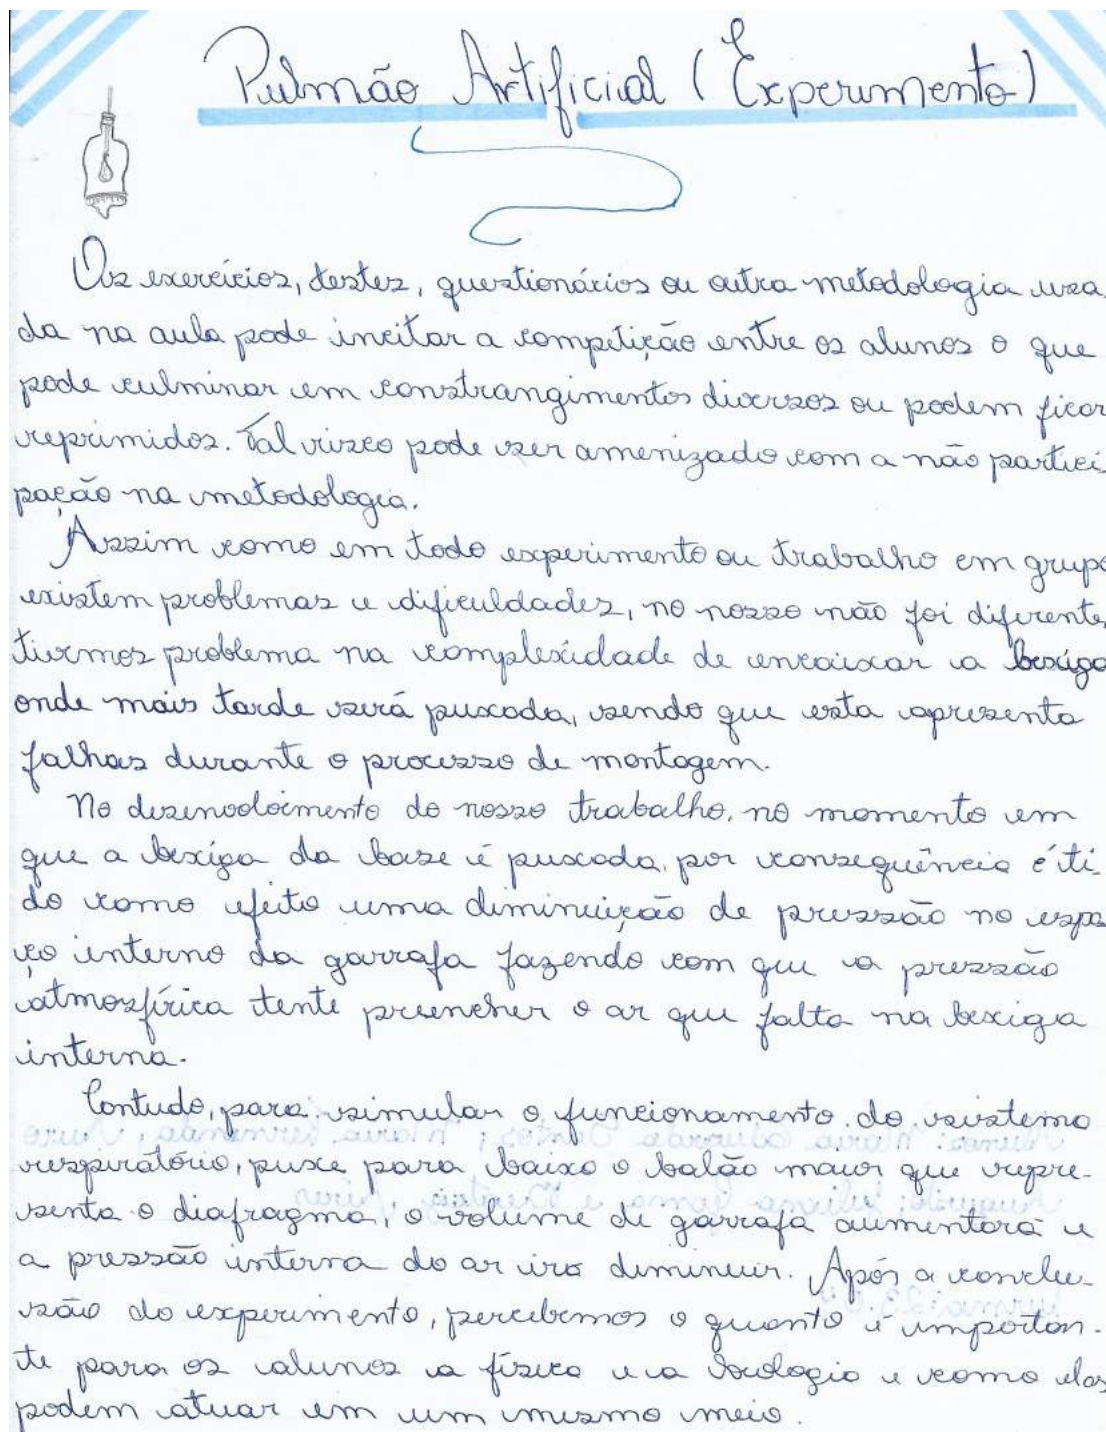 Pulmão Artificial (Experimento)
Os exercícios, testes, questionários ou outra metodologia usa
da na aula pode incitar a competição entre os alunos o que
pode culminar em constrangimentos diversos ou podem ficar
reprimidos. Tal risco pode ser amenizado com a não partici
pação na metodologia.
Assim como em todo experimento ou trabalho em grupo
existem problemas e dificuldades, no nosso não foi diferente,
tivemos problema na complexidade de encaixar a bexiga
onde mais tarde será puxada, sendo que esta apresenta
falhas durante o processo de montagem.
No desenvolvimento do nosso trabalho, no momento em
que a bexiga da base é puxada, por consequência é ti-
do como efeito uma diminuição de pressão no espa
ço interno da garrafa fazendo com que a pressão
atmosférica tente preencher o ar que falta na bexiga
interna.
Contudo, para simular o funcionamento do sistema
respiratório, puxe para baixo o balão maior que repre-
senta o diafragma, o volume de garrafa aumentará e
a pressão interna do ar irá diminuir. Após a conclu-
são do experimento, percebemos o quanto é importan-
te para os alunos a física e a biologia e como elas
podem atuar em um mesmo meio.